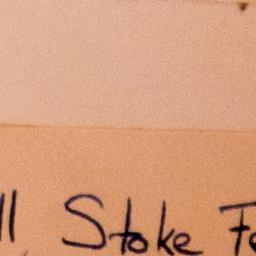 ll Stoke Fe